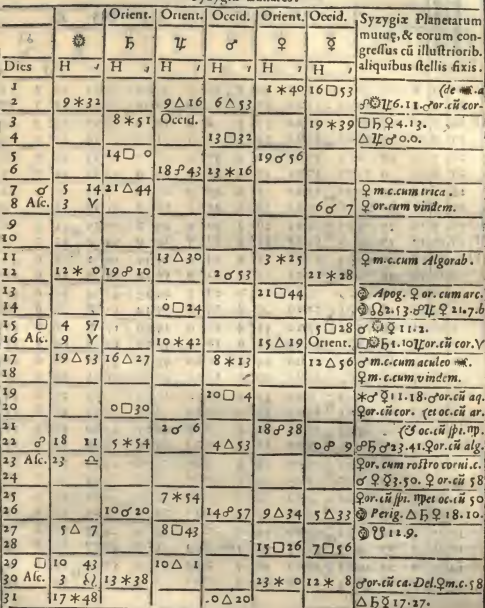 Orient. Orient. Occid. Orient. Occid. Syzygiæ Planetarum
☼ ♄ ♃ ♂ ♀ ☿ mutuę, & eorum con-
gressus cũ illustriorib.
Dies H ʼ H ʼ H ʼ H ʼ H ʼ H ʼ aliquibus stellis fixis.
1 1 ✶ 40 16 □ 53
2 9 ✶ 32 9 △ 16 6 △ 53
3 8 ✶ 51 Occid. 19 ✶ 39 □ ♄ ♀ 4.13.
4 13 □ 32 △ ♃ ♂ 0.0.
5 14 □ 0 19 ☌ 56
6 18 ☍ 43 23 ✶ 16
7 ☌ 5 14 21 △ 44 ♀ m.c.cum trica.
8 Asc. 3 ♈ 6 ☌ 7 ♀ or.cum vindem.
9
10
11 13 △ 30 3 ✶ 25 ♀ m.c.cum Algorab.
12 12 ✶ 0 19 ☍ 10 2 ☌ 53 21 ✶ 28
13 21 □ 44 Apog. ♀ or.cum arc.
14 0 □ 24 ☊ 2.53. ☍ ♃ ♀ 21.7.b
15 □ 4 57 5 □ 28 ☌ ☼ ☿ 11.2.
16 Asc. 9 ♈ 10 ✶ 42 15 △ 19 Orient. □ ☼ ♄ 1.10 ♃ or.cũ cor.♈
17 19 △ 53 16 ✶ 27 8 ✶ 13 12 △ 56 ♂ m.c.cum aculeo
18 ♀ m.c.cum vindem.
19 20 □ 4 ✶ ♂ ☿ 11.18. ♂ or.cũ aq.
20 0 □ 30 ♀ or.cũ cor. (et oc.cũ ar.
21 2 ☌ 6 18 ☍ 38
22 ☍ 18 11 5 ✶ 54 4 △ 53 0 ☍ 9 ☍ ♄ ♂ 23.41. ♀ or.cũ alg.
23 Asc. 23 ♎ ♀ or. cum rostro corni.c.
24 ☌ ♀ ☿ 3.50. ♀ or.cũ 58
25 7 ✶ 54 ♀ or.cũ spi. ♍ et oc.cũ 50
26 10 ☌ 20 14 ☍ 57 9 △ 34 5 △ 33 Perig. △ ♄ ♀ 18.10.
27 5 △ 7 8 □ 43 ☋ 12.9.
28 15 □ 26 7 □ 56
29 □ 10 43 10 △ 1
30 Asc. 3 ♌ 13 ✶ 38 23 ✶ 0 12 ✶ 8 ♂ or.cũ ca. Del. ♀ m.c.58
31 17 ✶ 48 0 △ 20 △ ♄ ☿ 17.27.